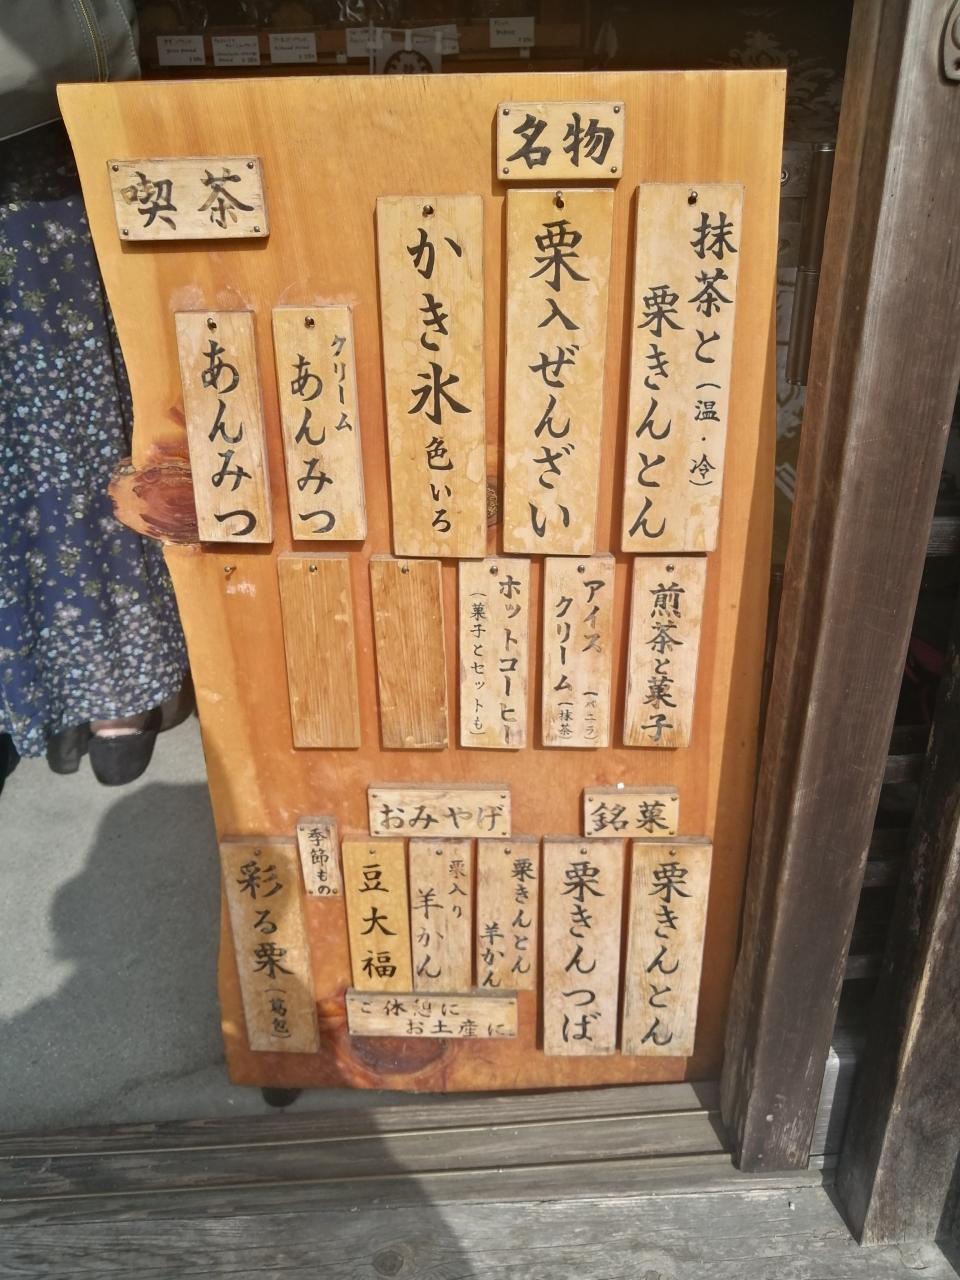 名物
抹茶と(温・冷)
栗きんとん
栗入ぜんざい
かき氷 色いろ
喫茶
クリーム
あんみつ
あんみつ
煎茶と菓子
アイス
クリーム
(バニラ)
(抹茶)
ホットコーヒー
(菓子とセットも)
銘菓
栗きんとん
栗きんつば
おみやげ
栗きんとん
羊かん
栗入り
羊かん
豆大福
ご休憩に
お土産に
季節もの
彩る栗(葛包)